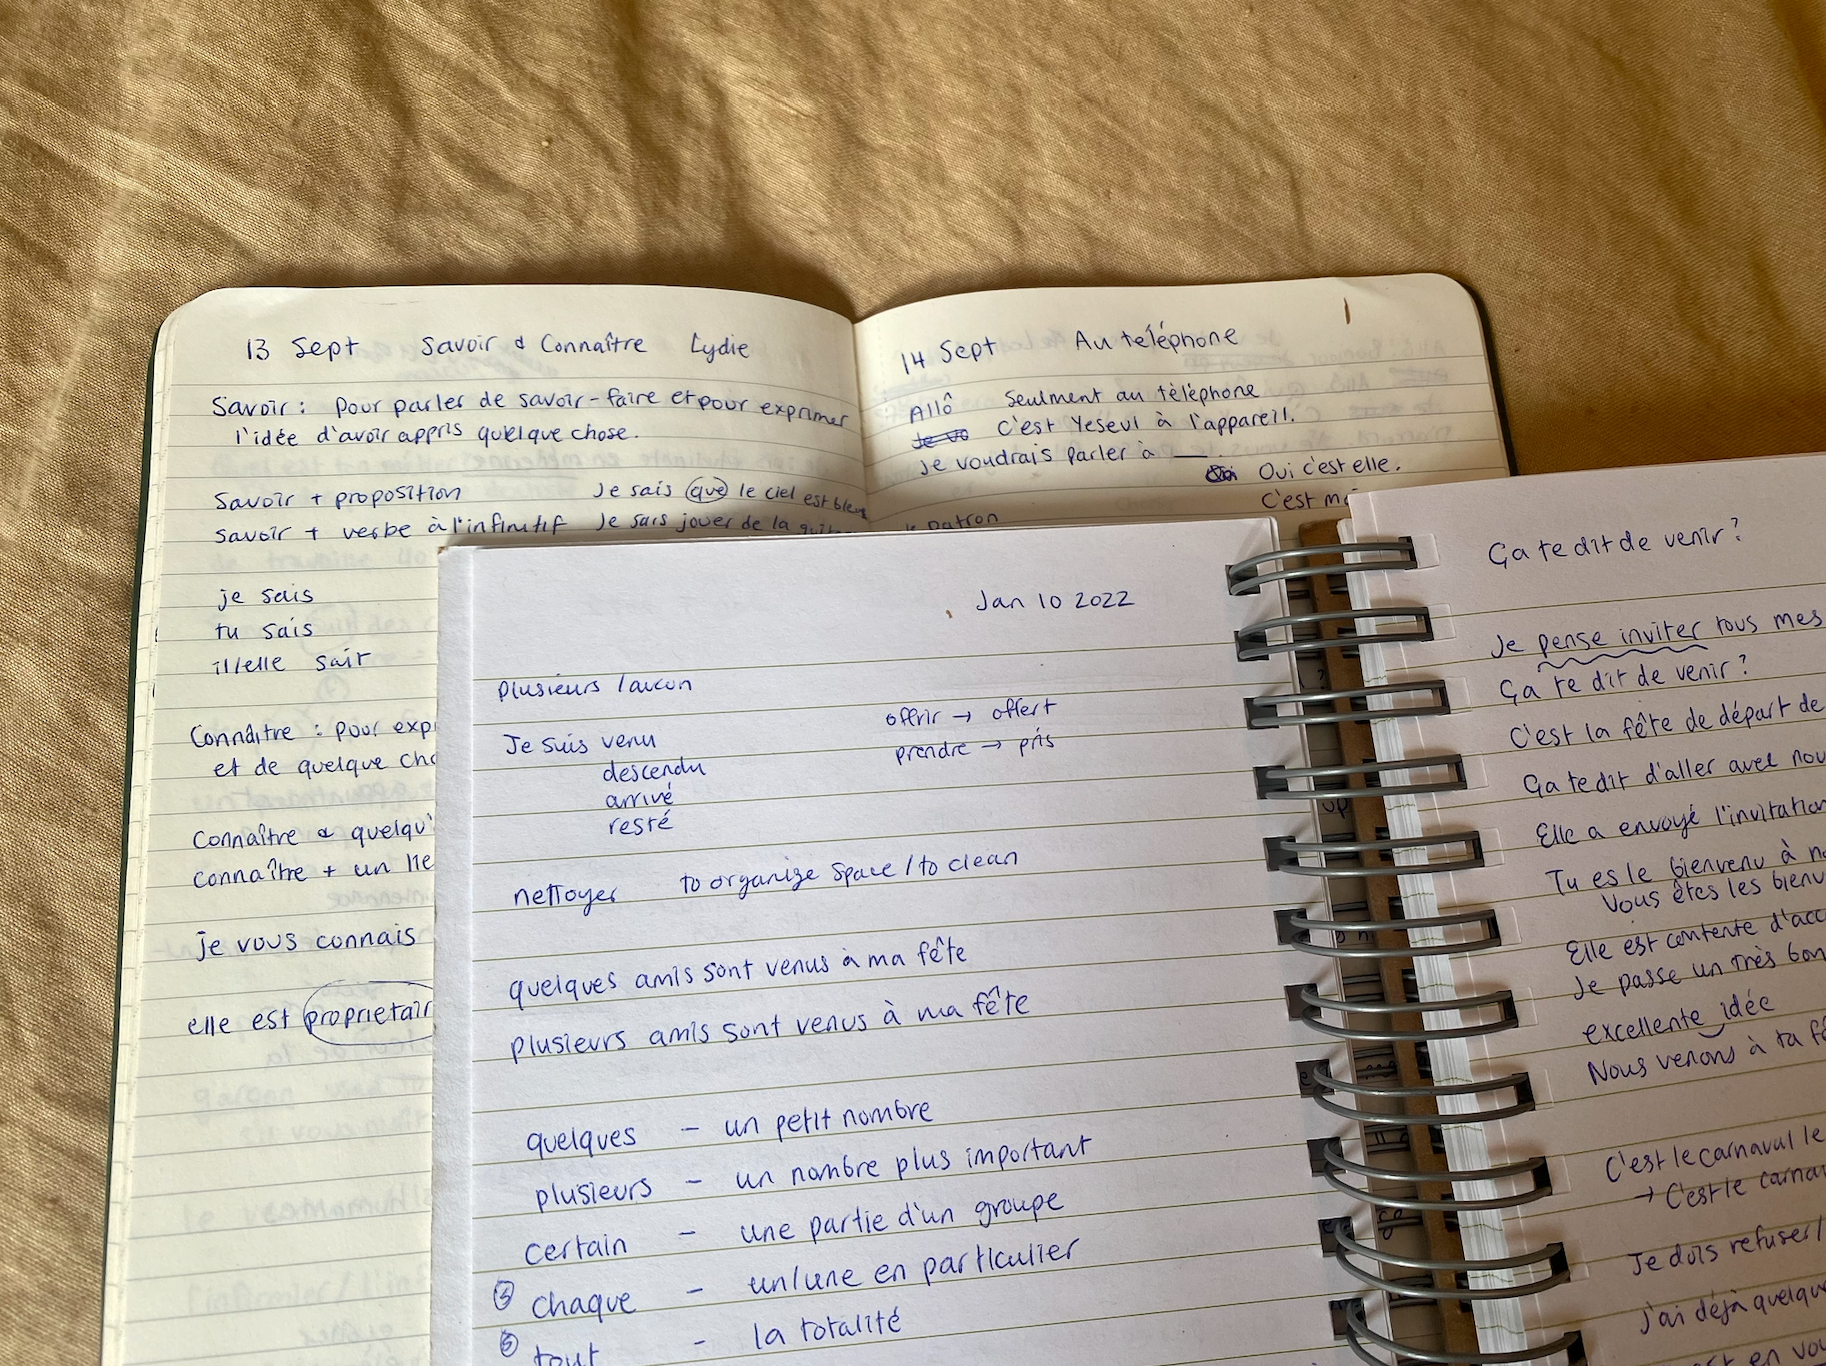 13 Sept Savoir & Connaître Lydie
Savoir : pour parler de savoir-faire et pour exprimer
l'idée d'avoir appris quelque chose.
Savoir + proposition Je sais que le ciel est bleu
savoir + verbe à l'infinitif Je sais jouer de la
je sais
tu sais
il/elle sait
Connaître : pour exp
et de quelque cho
Connaître & quelqu'
connaître + un lie
je vous connais
elle est proprietair
14 Sept Au téléphone
Allô Seulment au tèléphone
Je vo C'est Yeseul à l'appareil.
je voudrais parler à ___.
Oui c'est elle.
C'est m
le patron
Jan 10 2022
plusieurs / aucun
offrir → offert
Je suis venu
prendre → pris
descendu
arrivé
resté
nettoyer to organize space / to clean
quelques amis sont venus à ma fête
plusieurs amis sont venus à ma fête
quelques - un petit nombre
plusieurs - un nombre plus important
certain - une partie d'un groupe
chaque - un/une en particulier
⑤ tout - la totalité
Ça te dit de venir ?
Je pense inviter tous mes
Ça te dit de venir ?
C'est la fête de départ de
Ça te dit d'aller avec nou
Elle a envoyé l'invitation
Tu es le bienvenu à n
Vous êtes les bienv
Elle est contente d'acc
Je passe un très bon
excellente idée
Nous venons à ta fê
C'est le carnaval le
→ C'est le carnav
Je dois refuser/
j'ai déjà quelqu
est en vou